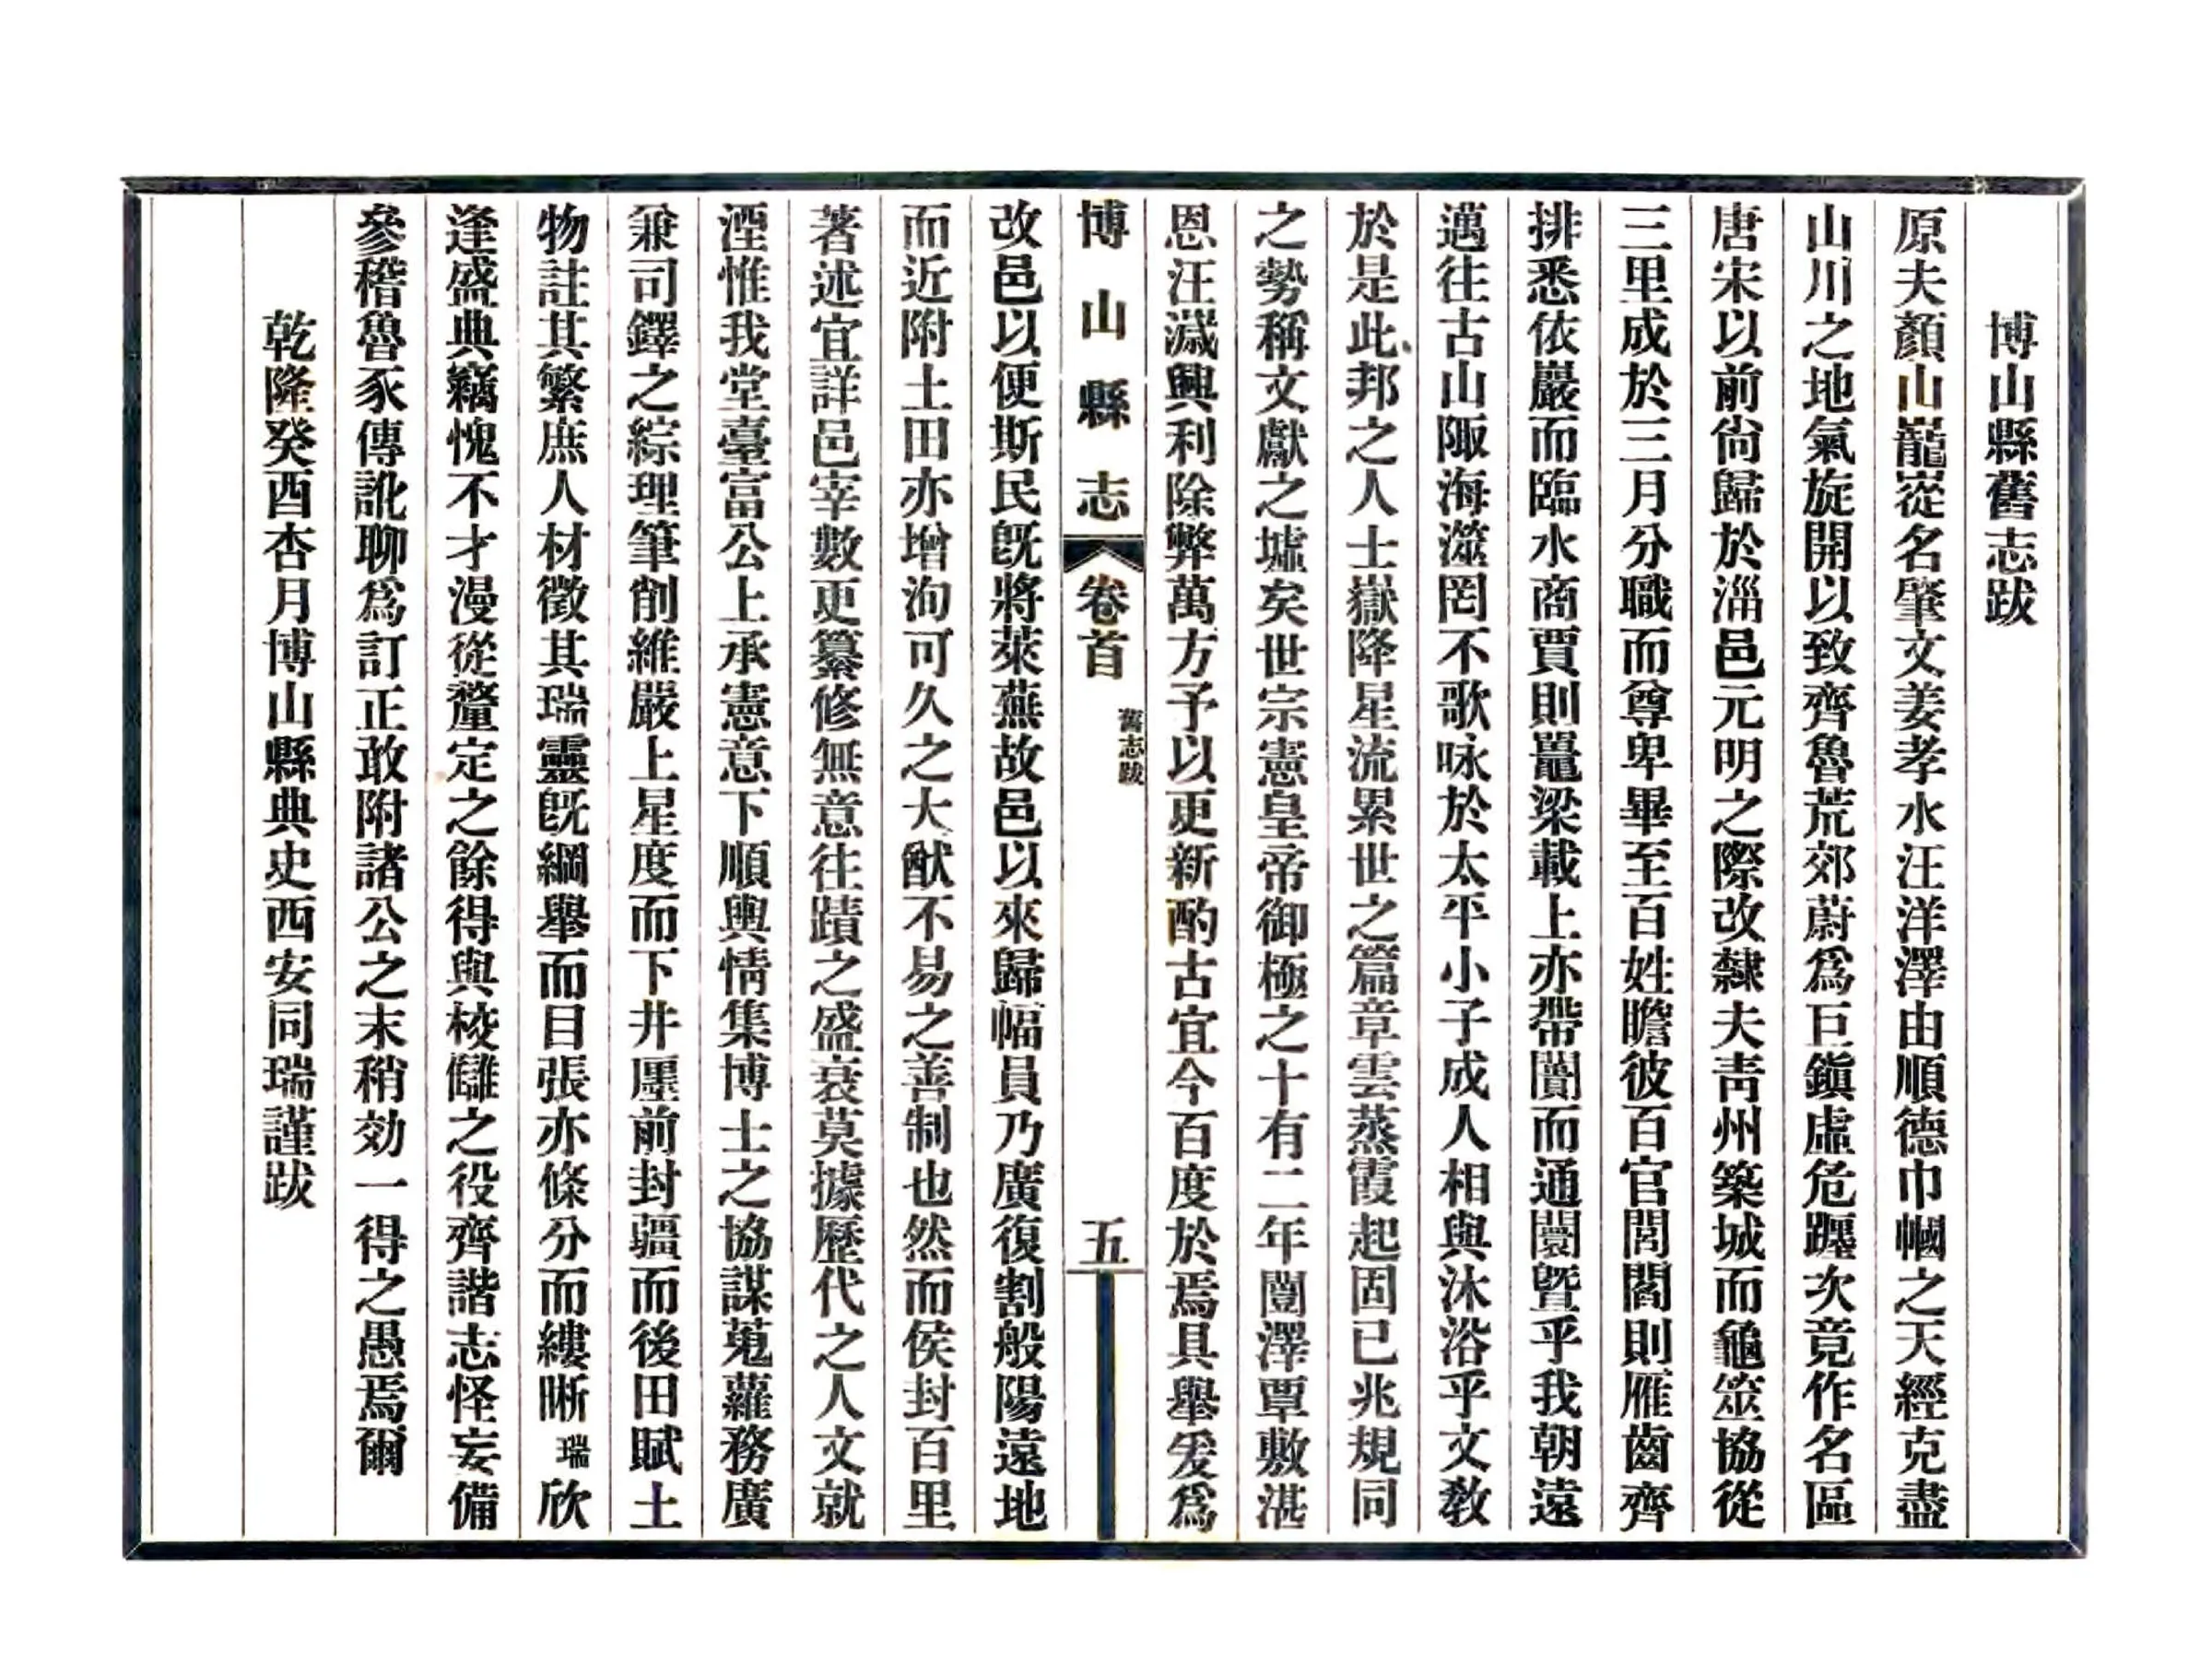 博山縣舊志跋
原夫顏山巃嵸名肇文姜孝水汪洋澤由順德巾幗之天經克盡
山川之地氣旋開以致齊魯荒郊蔚爲巨鎭虛危躔次竟作名區
唐宋以前尙歸於淄邑元明之際改隸夫靑州築城而龜筮協從
三里成於三月分職而尊卑畢至百姓瞻彼百官閭閻則雁齒齊
排悉依巖而臨水商賈則黿梁載上亦帶闤而通闠曁乎我朝遠
邁往古山陬海澨罔不歌咏於太平小子成人相與沐浴乎文敎
於是此邦之人士嶽降星流累世之篇章雲蒸霞起固已兆規同
之勢稱文獻之墟矣世宗憲皇帝御極之十有二年闓澤覃敷湛
恩汪濊興利除弊萬方予以更新酌古宜今百度於焉具舉爰爲
博山縣志 卷首 舊志跋 五
改邑以便斯民旣將萊蕪故邑以來歸幅員乃廣復割般陽遠地
而近附土田亦增洵可久之大猷不易之善制也然而侯封百里
著述宜詳邑宰數更纂修無意往蹟之盛衰莫據歷代之人文就
湮惟我堂臺富公上承憲意下順輿情集博士之協謀蒐羅務廣
兼司鐸之綜理筆削維嚴上星度而下井廛前封疆而後田賦土
物註其繁庶人材徵其瑞靈旣綱舉而目張亦條分而縷晰瑞欣
逢盛典竊愧不才漫從釐定之餘得與校讎之役齊諧志怪妄備
參稽魯豕傳訛聊爲訂正敢附諸公之末稍効一得之愚焉爾
乾隆癸酉杏月博山縣典史西安同瑞謹跋